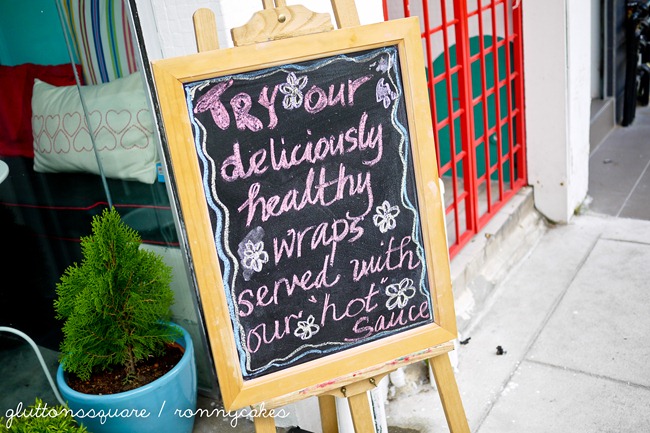 Try our
deliciously
healthy
wraps
served with
our "hot"
sauce
gluttonssquare / ronnycakes